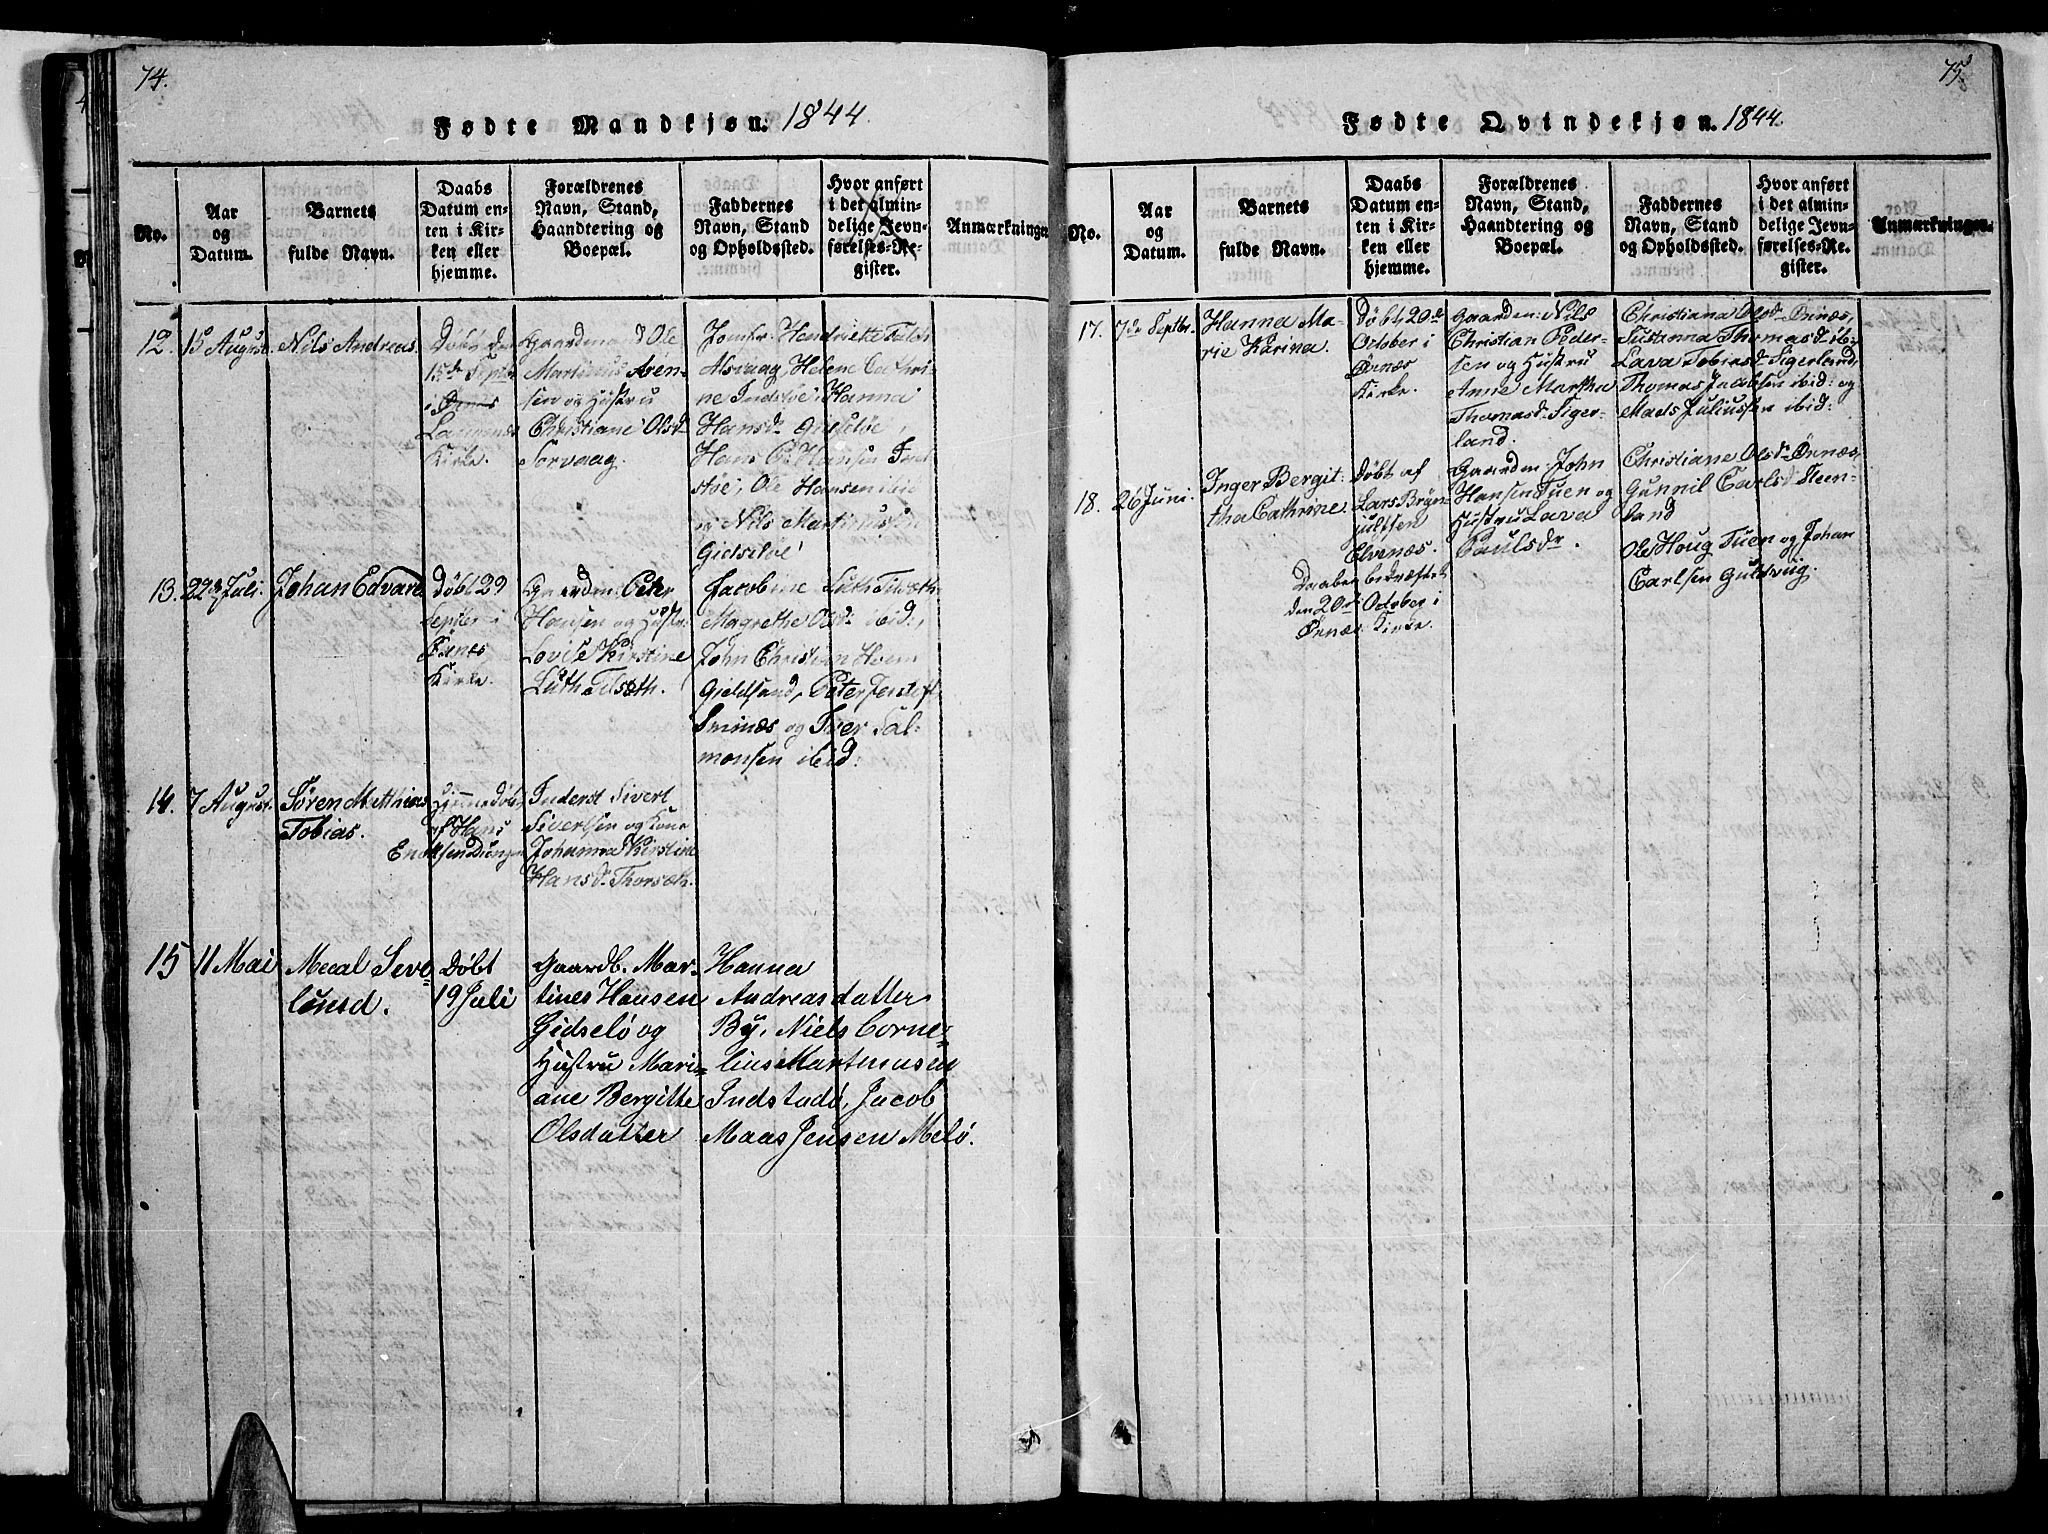 74.
Fødte Mandkjøn. 1844.
No.
Aar og Datum.
Barnets fulde Navn.
Daabs Datum enten i Kirken eller hjemme.
Forældrenes Navn, Stand, Haandtering og Boepæl.
Faddernes Navn, Stand og Opholdssted.
Hvor anført i det almindelige Jevnførelses-Register.
Anmærkninger
12. 15 August. Nils Andreas.
Døbt den
15de Septbr
i Ørnes
Kirke.
Gaardmand Ole
Martinus Aren-
sen og Hustru
Christiane Olsd
Sorvaag.
Jomfr. Hendriette
Alsvaag, Helene Cathri-
ne Indstøe, Hanna
Hansd. Gidsløe,
Hans P. Hansen Ind
støe, Ole Hansen ibid
og Nils Martinussen
Gidsløe
13. 22de Juli. Johan Edvard
Døbt 29
Septbr i
Ørnes
Kirke.
Gaardm. Peter
Hansen og Hustr:
Lovise Kirstine
Luth Tilsæth.
Jacobine Luth Tilsæth
Magrethe Olsd. ibid:,
John Christian
Gjeldsand, Peter
og Iver Sal-
monsen ibid:
14. 7 August. Søren Matthias
Tobias.
Hjemmedøbt
af Hans
Enoksen Dungen
Inderst Sivert
Sivertsen og Kone
Johanna Kirstine
Hansd. Thorsæth.
15 11 Mai Mecal Seve-
lunsd.
Døbt
19 Juli
Gaardb. Mar-
tines Hansen
Gidselø og
Hustru Mari-
ane Bergitte
Olsdatter
Hanna
Andreasdatter
By, Niels Corne-
lius Martinusen
Indstadø, Jacob
Maas Jensen Melø.
75.
Fødte Qvindekjøn. 1844.
No.
Aar og Datum.
Barnets fulde Navn.
Daabs Datum enten i Kirken eller hjemme.
Forældrenes Navn, Stand, Haandtering og Boepæl.
Faddernes Navn, Stand og Opholdssted.
Hvor anført i det almindelige Jevnførelses-Register.
Anmærkninger.
17. 7de Septbr. Hanna Ma-
rie Karina.
Døbt 20de
October i
Ørnæs
Kirke
Gaardm: Nils
Christian Peder-
sen og Hustru
Anne Martha
Thomasd. Siger-
land.
Christiana Olsd. Ørnæs,
Susanna Thomasd. ib:
Lava Tobiasd. Sigerland,
Thomas Jacobsen ibid: og
Mads Juliussen ibid:
18. 26 Juni. Inger Bergit-
tha Cathrine.
Døbt af
Lars Bryn-
julfsen
Elvenæs.
Daaben bedræftet
den 20de October i
Ørnæs Kirke.
Gaardm: John
Hansen Tuen og
Hustru Lava
Paulsdr.
Christiane Olsd. Ørnæs,
Gunnil Carlsd. Steen-
land
Ole Houg Tuen og Johan
Carlsen Guldvig.